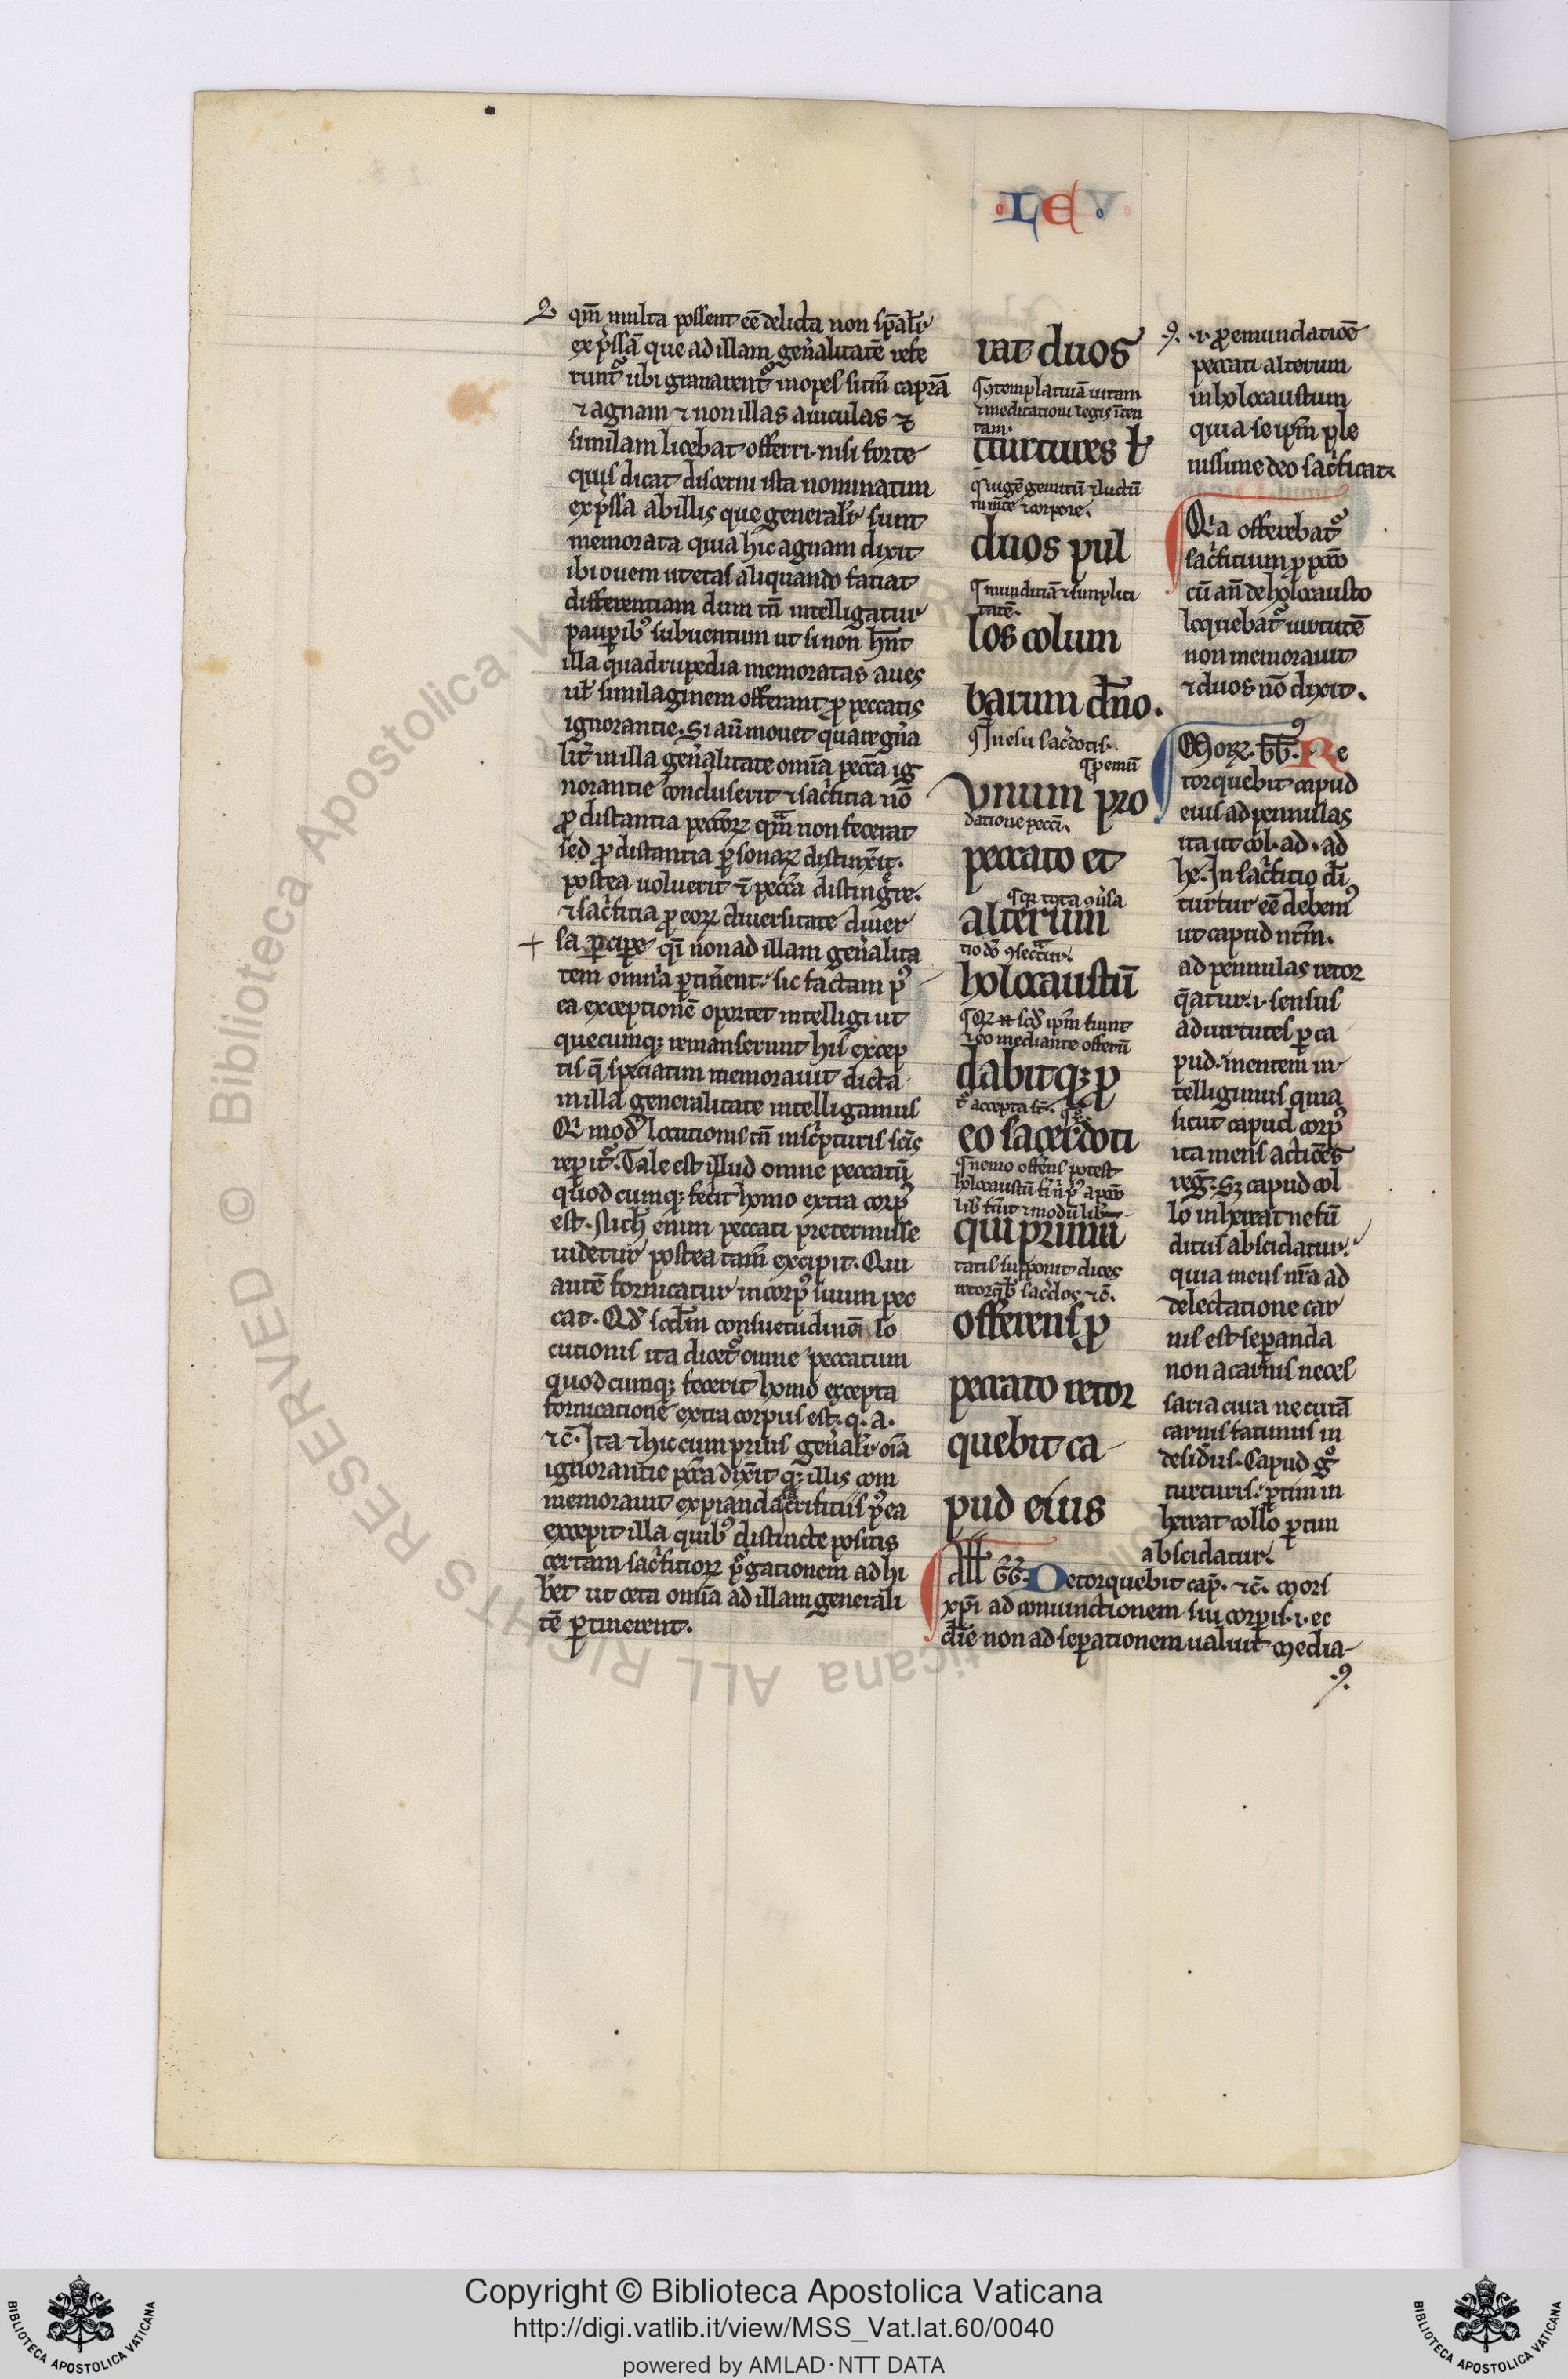 LEV
qm̄ multa possent eē delicta non sp̄alit̄
exp̄ssa que ad illam gen̄alitatē refe
runt᷑ ubi grauarent᷑ inopes si tm̄ capram̄
⁊ agnam ⁊ non illas auiculas ⁊
similam licebat offerri. nisi forte
quis dicat discerni ista nominatim
exp̄ssa ab illis que generalit̄ sunt
memorata quia hic agnam dixit
ibi ouem ut etas aliquando faciat
differentiam dum tn̄ intelligatur
paupib᷒ subuentum ut si non hn̄t
illa quadrupedia memoratas aues
ul̄ similaginem offerant ꝓ peccatis
ignorantie. Si aū mouet quare gn̄a
lit̄ in illa gen̄alitate omīa pecc̄a ig
norantie concluserit ⁊ sac̄ficia nō
ꝓ distantia peccōꝝ qm̄ non fecerat
sed ꝓ distantia ꝑsonaꝝ distinx̄it.
postea uoluerit ⁊ pecc̄a disting̃re.
⁊ sac̄ficia ꝓ eoꝝ diuersitate diuer
sa ꝑcipe q̄i non ad illam gen̄alita
tem omn̄ia ꝑtin̄ent. sic factam p᷒
ea exceptionē oportet intelligi ut
quecumq; remanserunt his excep
tis q̄ speciatim memorauit dicta
in illa generalitate intelligamus
Qi mod᷒ locutionis tn̄ in sc̄pturis sc̄is
repit᷑. Tale est illud omne peccatū
quodcumq; fec̄it homo extra corp᷒
est. Nich̄ enim peccati pretermisse
uidetur postea tam̄ excipit. Qui
autē fornicatur in corp᷒ suum pec
cat. Qd̄ scd̄m consuetudinē lo
cutionis ita dicet᷑ omne peccatum
quodcumq; fecerit homo excepta
fornicatione extra corpus est. q. a.
⁊c̄. Ita ⁊ hic cum prius gen̄alit̄ oīa
ignorantie pecc̄a dix̄it q; illis com
memorauit expianda sacrificiis p᷒ea
excepit illa quib᷒ distincte positis
certam sac̄ficioꝝ p᷒gationem adhi
b̄et ut cet̄a omīa ad illam generali
tē ꝑtinerent.
rat duos
¶ 9templatiuā uitam
⁊ meditationi legis intēn
tam.
turtures ł
¶ iugē gemitū ⁊ luctū
in m̄te ⁊ corpore.
duos pul
¶ mundiciā ⁊ simplici
tatē.
los colum
barum dn̄o.
¶ In esu sac̄dotis.
¶ ꝓ emū
Vnum pro
datione pecc̄i.
peccato et
¶ q̄ tota 9u̇sa
alterum
tio dō 9secrat᷑.
holocaustū
dabitq; ꝓ
eo sacerdoti
¶ nemo offerens potest
qui primū
retorq̄b̄ sac̄dos ⁊c̄.
offerens ꝓ
peccato retor
quebit ca
pud eius
.9. .i. ꝓ emundatiōe
peccati alterum
in holocaustum
quia se ip̄m ple
nissime deo sac̄ficat.
Qia offerebat᷑
sac̄ficium ꝓ pccō
cū an̄ de holocausto
loquebat᷑ uirtutē
non memorauit
⁊ duos nō dixit.
Moꝝ. GG. Re
torquebit capud
eius ad pennulas
ita ut col. ad. ad
he. In sac̄ficio dī
turtur eē debem᷒
ut capud nr̄m.
ad pennulas retor
q̄atur. i. sensus
ad uirtutes ꝑ ca
pud. mentem in
telligimus quia
sicut capud corp᷒
ita mens actiōes
reg̃. Sꝫ capud col
lo inhereat ne fū
ditus abscidatur.
quia mens nr̄a ad
delectatione car
nis est sepanda
non a carnis neces
saria cura ne curā
carnis faciamus in
desid̄iis. Capud g᷒
turturis. ꝑtim in
hereat collo ꝑtim
abscidatur.
All. GG. Retorquebit cap̄. ⁊c̄. Mors
xp̄i ad coniunctionem sui corpis. i. ec
cl̄ie non ad sepationem ualuit. Media
.9.
Copyright © Biblioteca Apostolica Vaticana
http://digi.vatlib.it/view/MSS_Vat.lat.60/0040
powered by AMLAD·NTT DATA